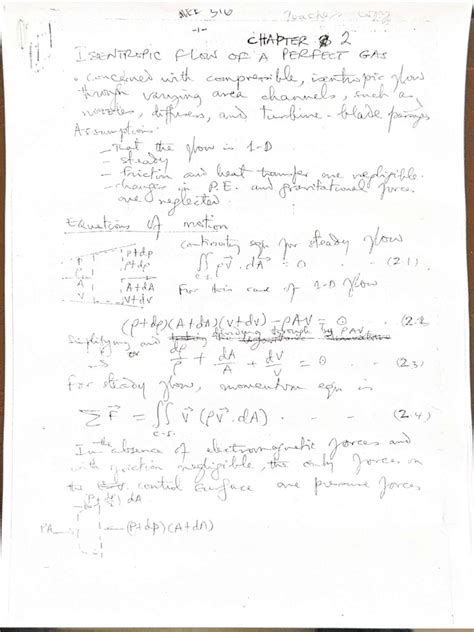 MCE 516 Teacher's Copy
-1-
CHAPTER 2
ISENTROPIC FLOW OF A PERFECT GAS
• concerned with compressible, isentropic flow
through varying area channels, such as
nozzles, diffusers, and turbine-blade passages
Assumptions:
– that the flow is 1-D
– steady
– friction and heat transfer are negligible.
– changes in P.E. and gravitational force
are neglected.
Equations of motion
continuity eqn for steady flow
P+dp
ρ+dρ
A+dA
V+dV
A
V
∬ ρV⃗ . dA⃗ = 0 . . (2.1)
c.s.
For this case of 1-D flow
(ρ+dρ)(A+dA)(V+dV) – ρAV = 0 . (2.2
Simplifying and dividing through by ρAV
or
dρ/ρ + dA/A + dV/V = 0 . . (2.3)
For steady flow, momentum eqn is
∑F⃗ = ∬ V⃗ (ρV⃗.dA) . . . (2.4)
c.s.
In the absence of electromagnetic forces and
with friction negligible, the only forces on
the control surface are pressure forces
(P+dp/2) dA
PA
(P+dp)(A+dA)